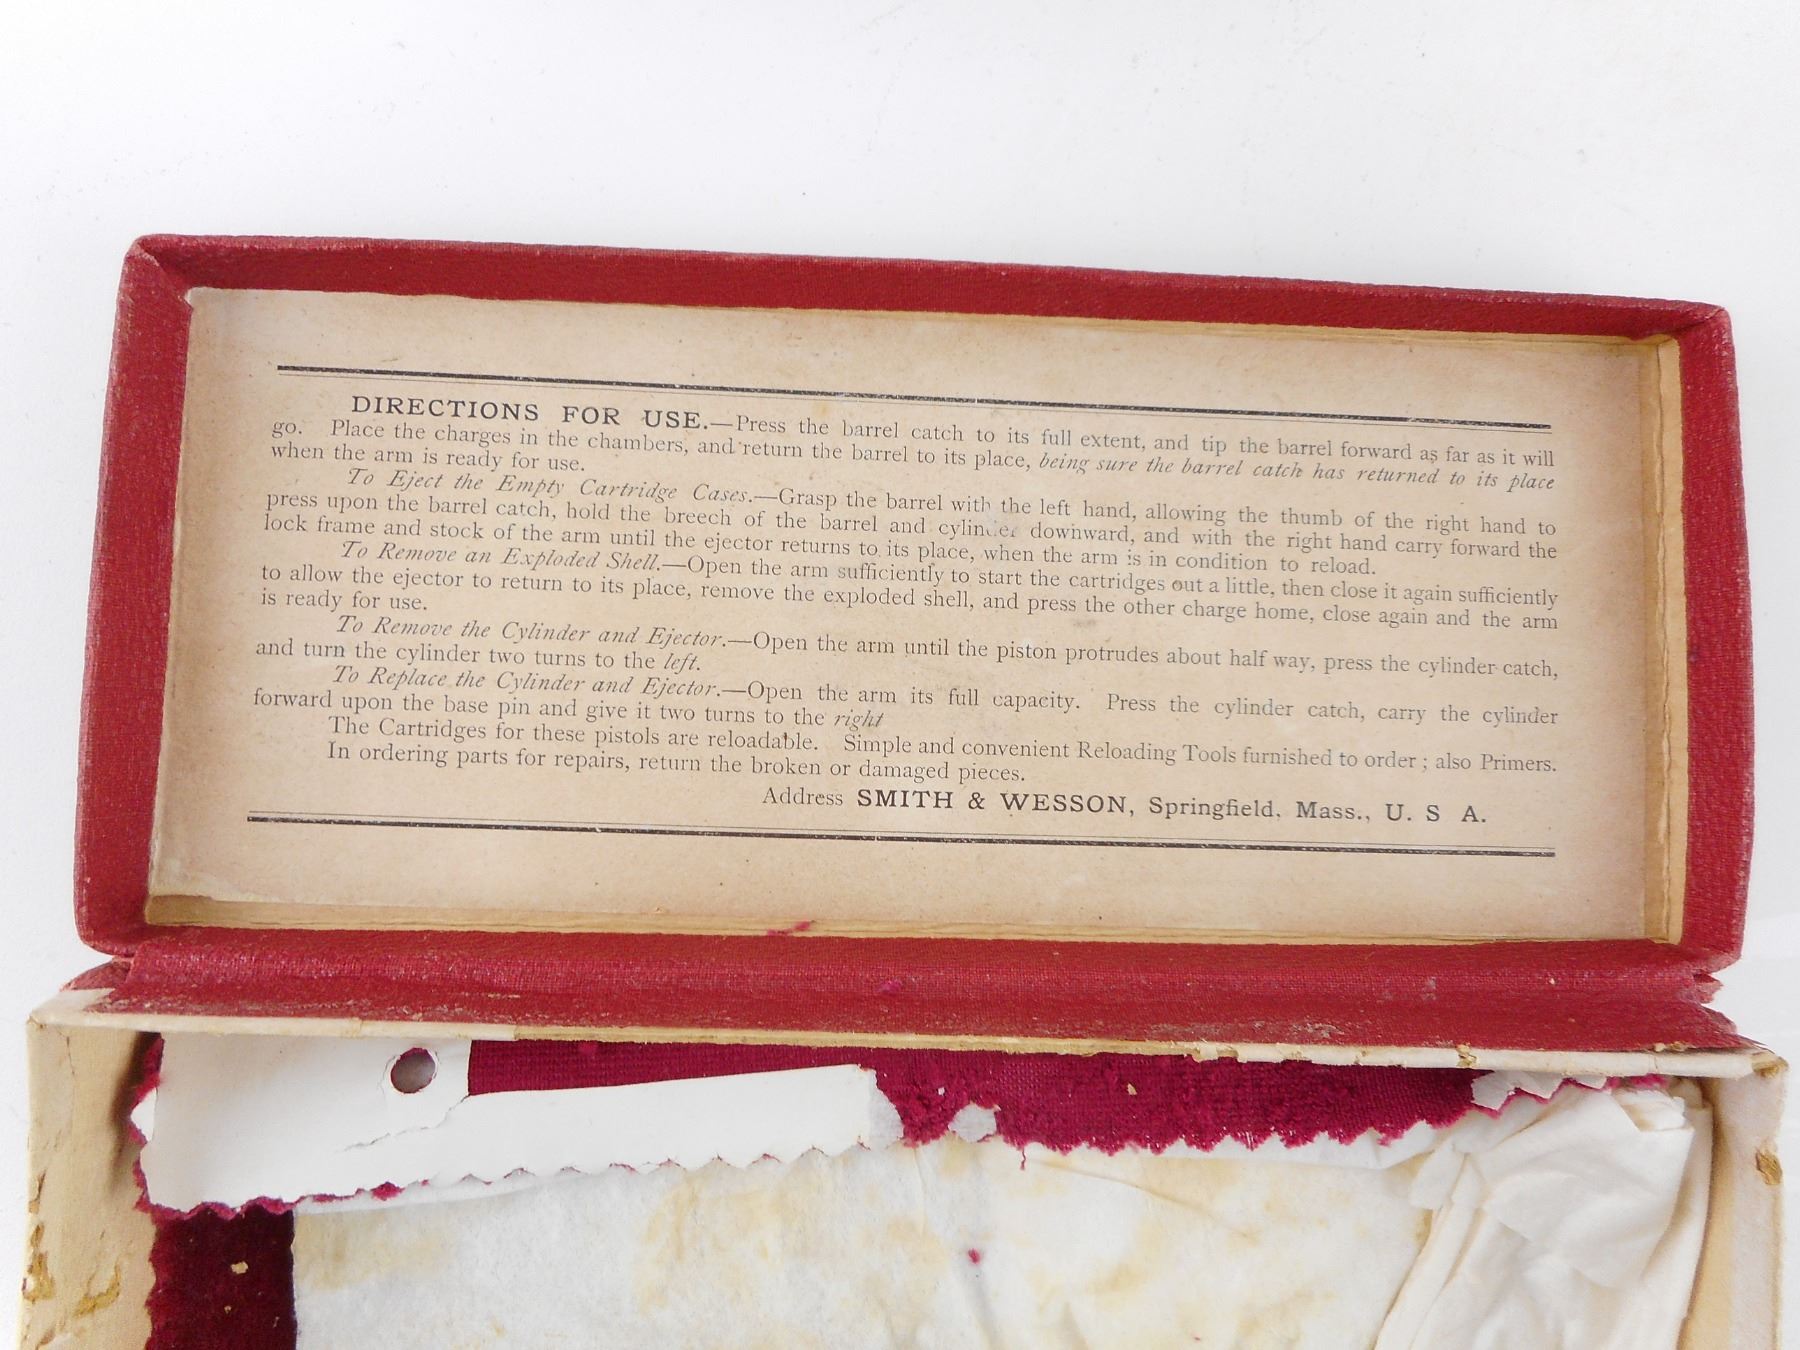 DIRECTIONS FOR USE.—Press the barrel catch to its full extent, and tip the barrel forward as far as it will
go. Place the charges in the chambers, and return the barrel to its place, being sure the barrel catch has returned to its place
when the arm is ready for use.
To Eject the Empty Cartridge Cases.—Grasp the barrel with the left hand, allowing the thumb of the right hand to
press upon the barrel catch, hold the breech of the barrel and cylinder downward, and with the right hand carry forward the
lock frame and stock of the arm until the ejector returns to its place, when the arm is in condition to reload.
To Remove an Exploded Shell.—Open the arm sufficiently to start the cartridges out a little, then close it again sufficiently
to allow the ejector to return to its place, remove the exploded shell, and press the other charge home, close again and the arm
is ready for use.
To Remove the Cylinder and Ejector.—Open the arm until the piston protrudes about half way, press the cylinder catch,
and turn the cylinder two turns to the left.
To Replace the Cylinder and Ejector.—Open the arm its full capacity. Press the cylinder catch, carry the cylinder
forward upon the base pin and give it two turns to the right
The Cartridges for these pistols are reloadable. Simple and convenient Reloading Tools furnished to order; also Primers.
In ordering parts for repairs, return the broken or damaged pieces.
Address SMITH & WESSON, Springfield, Mass., U. S A.